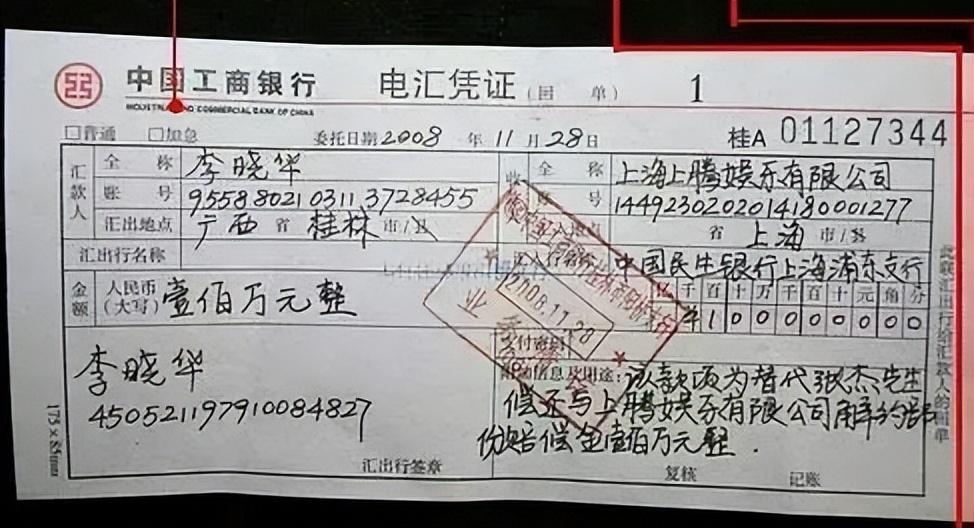 中国工商银行 电汇凭证 （回单） 1
INDUSTRIAL AND COMMERCIAL BANK OF CHINA
□普通 □加急 委托日期2008年11月28日 桂A 01127344
汇款人 全称 李晓华 收 全称 上海上腾娱乐有限公司
账号 9558802103113728455 账号 1449230202014180001277
汇出地点 广西省桂林市/县 省上海市/县
汇出行名称 汇入行名称 中国民生银行上海浦东支行
金额 人民币（大写） 壹佰万元整 千百十万千百十元角分
¥100000000
2008.11.28
业务
支付密码
李晓华
450521197910084827
附加信息及用途：该款项为替代张杰先生
偿还与上腾娱乐有限公司解约部
份赔偿金壹佰万元整．
汇出行签章 复核 记账
此联汇出行给汇款人的回单